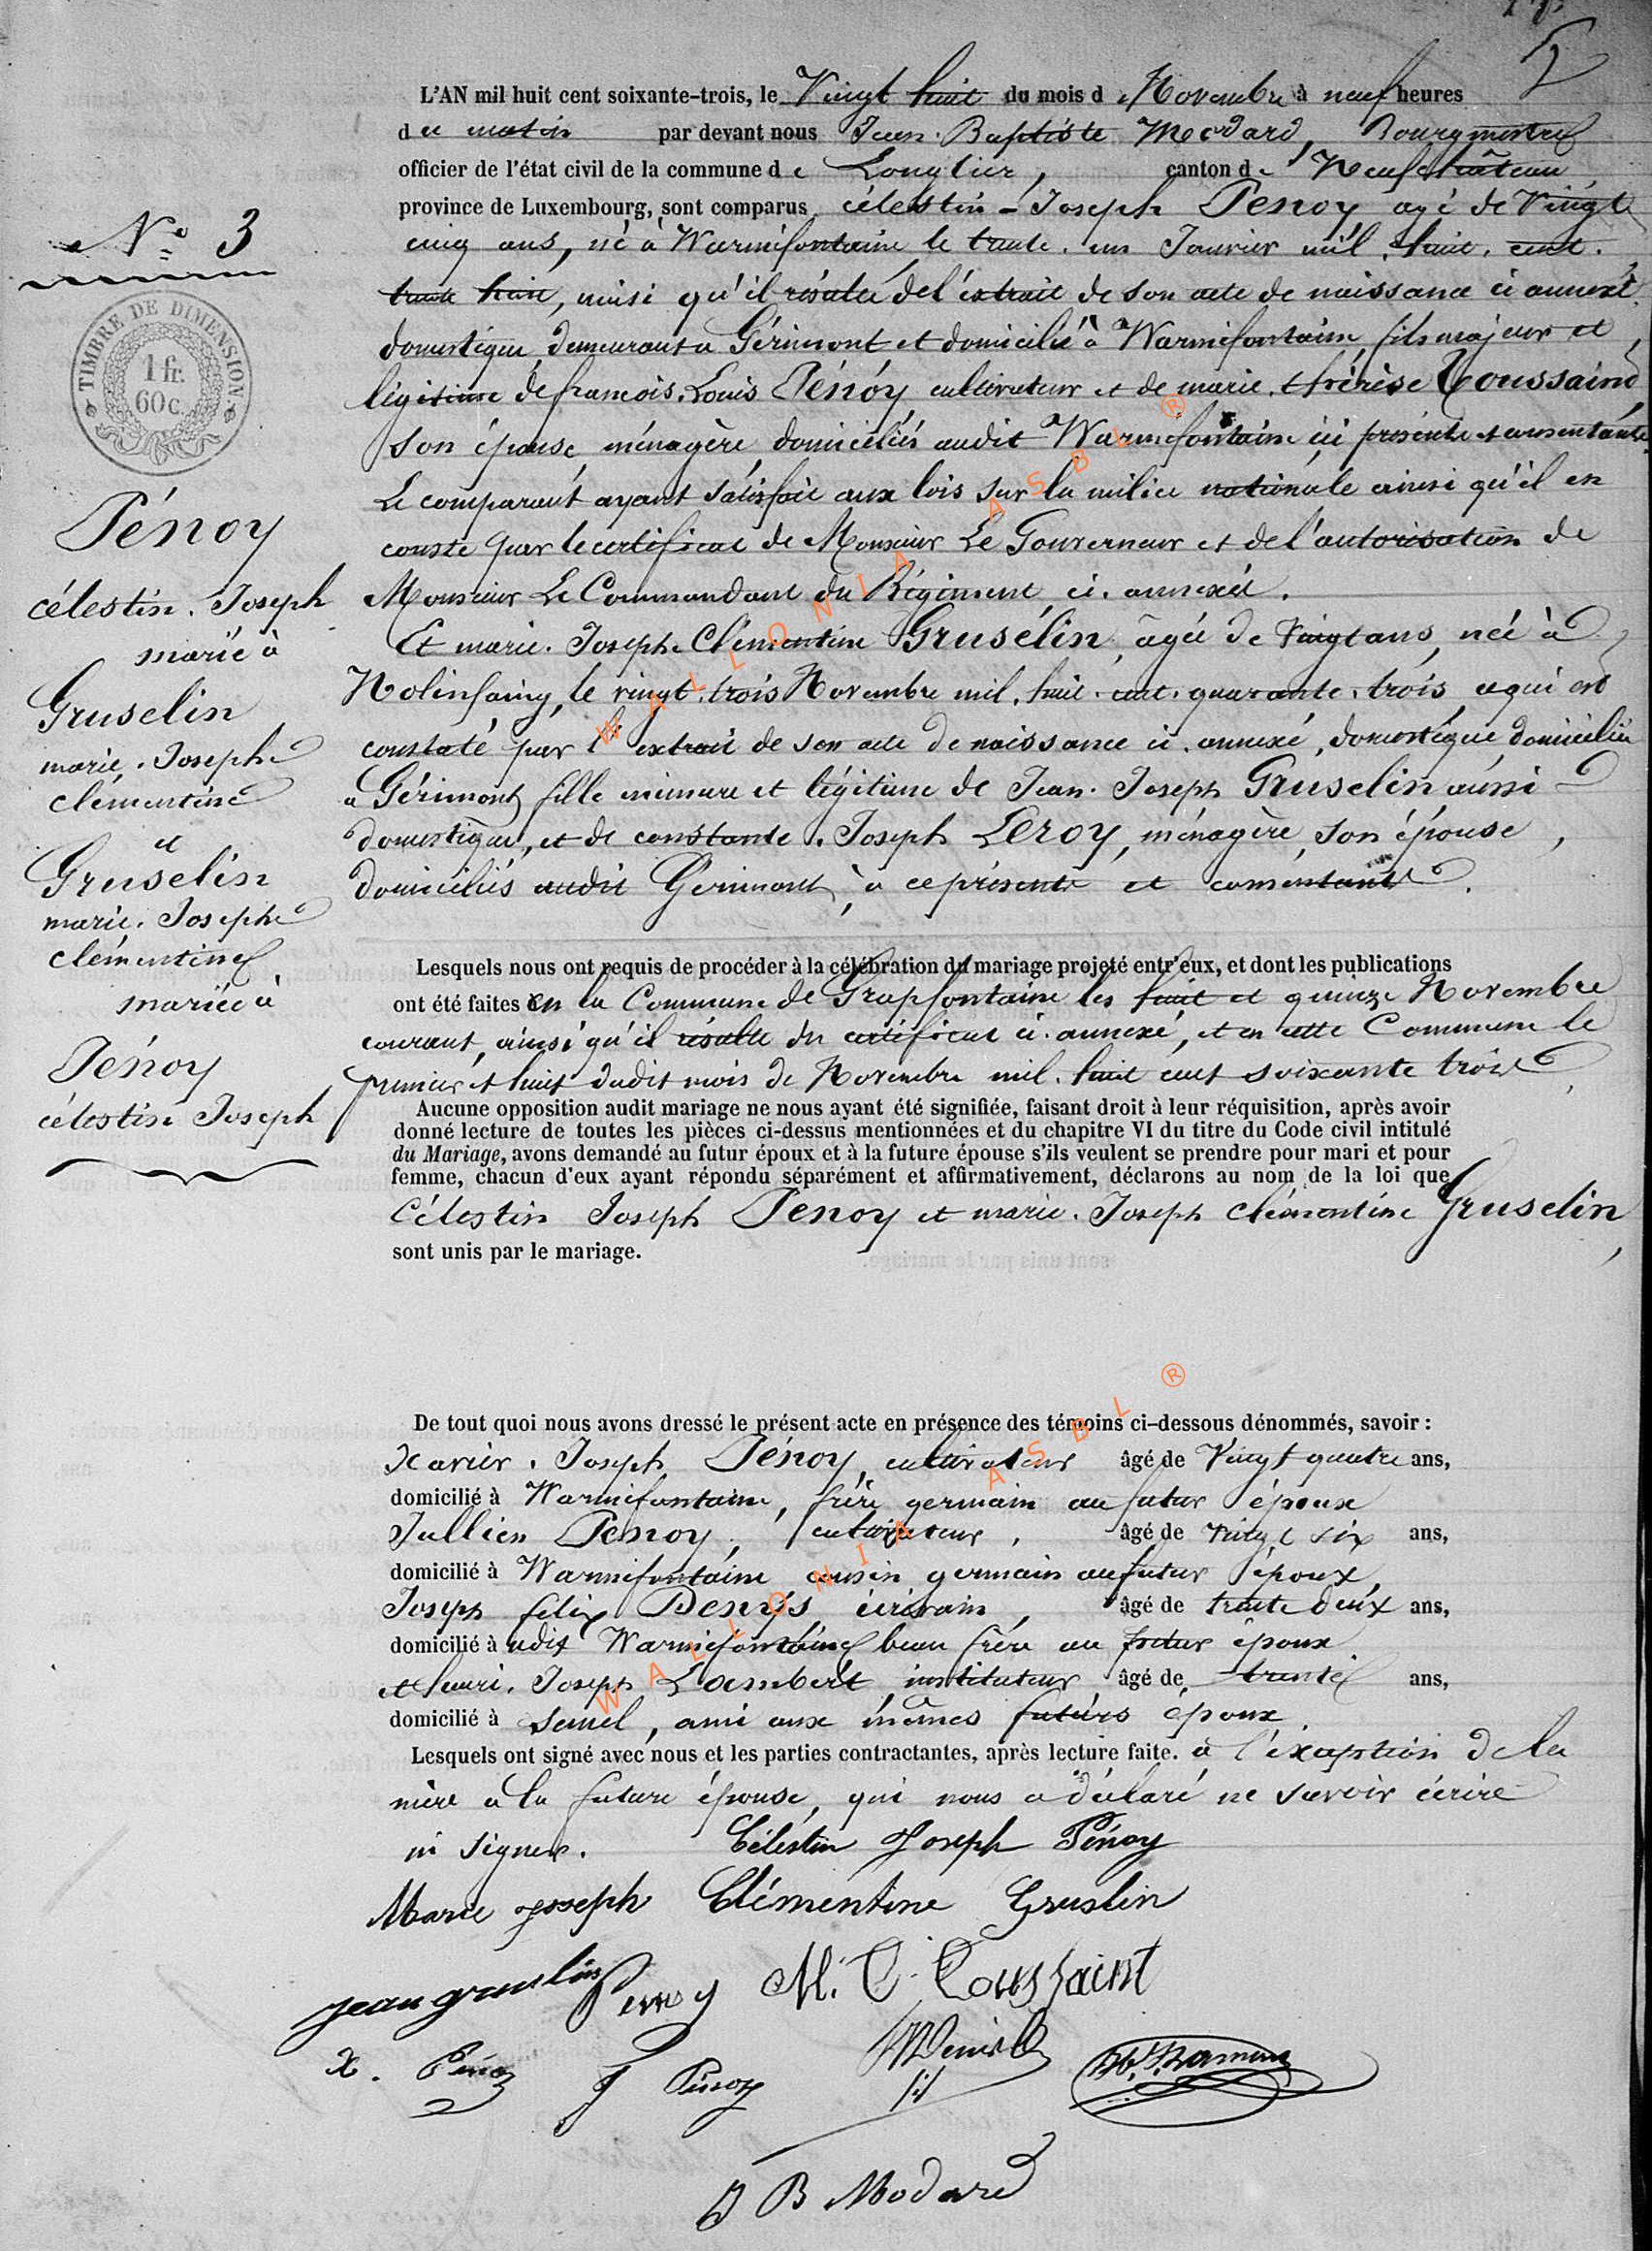 5
L'AN mil huit cent soixante-trois, le Vingt huit du mois de Novembre à neuf heures
du matin par devant nous Jean Baptiste Modard, Bourgmestre
officier de l'état civil de la commune de Longlier, canton de Neufchâteau
province de Luxembourg, sont comparus célestin-Joseph Penoy agé de Vingt
cinq ans, né à Warmifontaine le trente un Janvier mil huit cent
trente huit, ainsi qu'il résulte de l'extrait de son acte de naissance ci annexé,
domestique, demeurant a Gérimont et domicilié à Warmifontaine, fils majeur et
légitime de francois Louis Pénoy cultivateur et de marie thérèse Toussaint
son épouse, ménagère, domiciliés audit Warmifontaine, ici présents et consentants
Le comparant ayant satisfait aux lois sur la milice nationale ainsi qu'il en
conste par le certificat de Monsieur Le Gouverneur et de l'autorisation de
Monsieur Le Commandant du Régiment ci annexés.
Et marie Joseph Clémentine Gruselin, âgée de vingt ans, née à
Molinfaing, le vingt trois Novembre mil huit cent quarante trois, ce qui est
constaté par l'extrait de son acte de naissance ci annexé, domestique, domiciliée
a Gérimont, fille mineure et légitime de Jean Joseph Gruselin aussi
domestique, et de constante Joseph Leroy, ménagère, son épouse,
domiciliés audit Gérimont, à ce présents et consentants.
Lesquels nous ont requis de procéder à la célébration du mariage projeté entr'eux, et dont les publications
ont été faites en la Commune de Grapfontaine les huit et quinze Novembre
courant, ainsi qu'il résulte du certificat ci annexé, et en cette Commune le
premier et huit dudit mois de Novembre mil huit cent soixante trois.
Aucune opposition audit mariage ne nous ayant été signifiée, faisant droit à leur réquisition, après avoir
donné lecture de toutes les pièces ci-dessus mentionnées et du chapitre VI du titre du Code civil intitulé
du Mariage, avons demandé au futur époux et à la future épouse s'ils veulent se prendre pour mari et pour
femme, chacun d'eux ayant répondu séparément et affirmativement, déclarons au nom de la loi que
Célestin Joseph Penoy et marie Joseph clémentine Gruselin,
sont unis par le mariage.
De tout quoi nous avons dressé le présent acte en présence des témoins ci-dessous dénommés, savoir :
Xavier Joseph Pénoy, cultivateur âgé de Vingt quatre ans,
domicilié à Warmifontaine, frère germain au futur époux
Jullien Penoy, cultivateur, âgé de vingt six ans,
domicilié à Warmifontaine cousin germain au futur époux,
Joseph felix Denys, écrivain, âgé de trente deux ans,
domicilié à udit Warmifontaine beau frère au futur époux
et henri Joseph Lambert, instituteur âgé de trente ans,
domicilié à Semel, ami aux mêmes futurs époux.
Lesquels ont signé avec nous et les parties contractantes, après lecture faite. a l'exception de la
mère a la future épouse, qui nous a déclaré ne savoir écrire
ni signer. Célestin Joseph Pénoy
Marie Joseph Clémentine Gruslin
Jean gruslin Penoy M. T. Toussaint
X. Pénoy J Pénoy
J B Modard
N° 3
TIMBRE DE DIMENSION
1 fr.
60 c.
Pénoy
célestin Joseph
marié à
Gruselin
marie Josephe
clémentine
et
Gruselin
marie Josephe
clémentine
mariée à
Pénoy
célestin Joseph
WALLONIA ASBL ®
WALLONIA ASBL ®